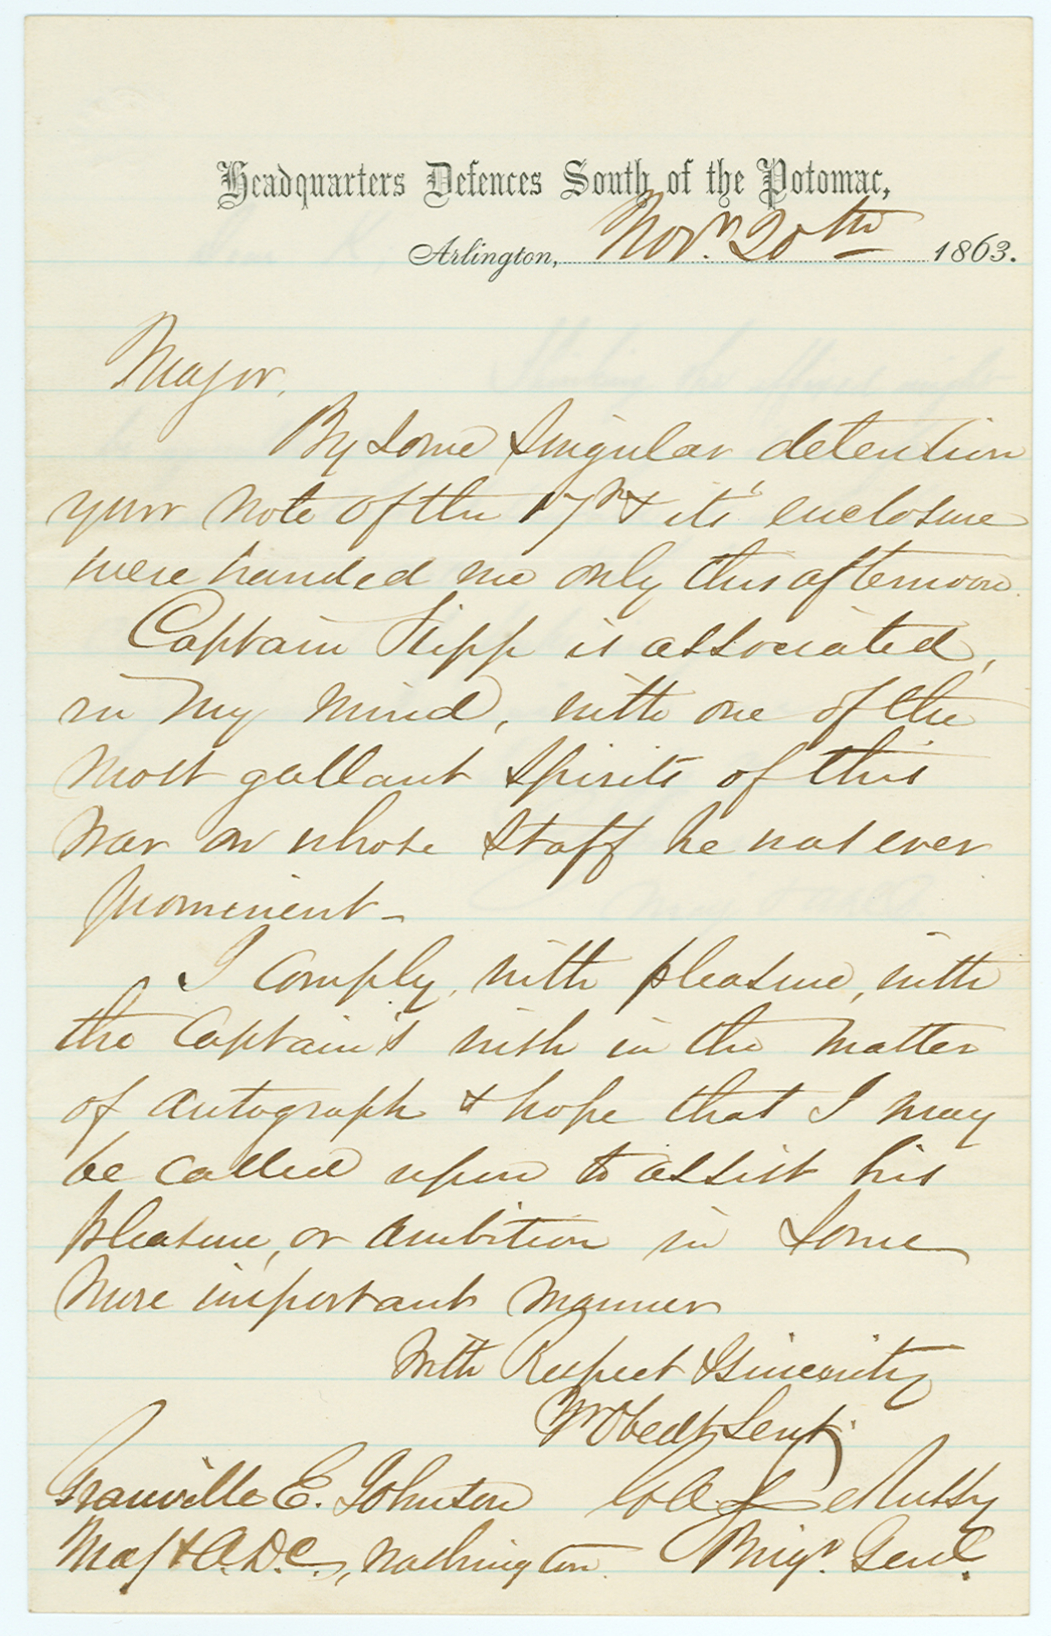 Headquarters Defences South of the Potomac,
Arlington, Novr. 20th 1863.
Major,
By some singular detention
your note of the 17th & it's enclosure
were handed me only this afternoon.
Captain Kipp is associated,
in my mind, with one of the
most gallant spirits of this
war on whose staff he was ever
prominent—
I comply, with pleasure, with
the Captain's wish in the matter
of autograph & hope that I may
be called upon to assist his
pleasure, or ambition in some
more important manner
With Respect & Sincerity
Yr Obedt Servt
Granville E. Johnson
Maj & A.D.C., Washington. Brigr. Genl.